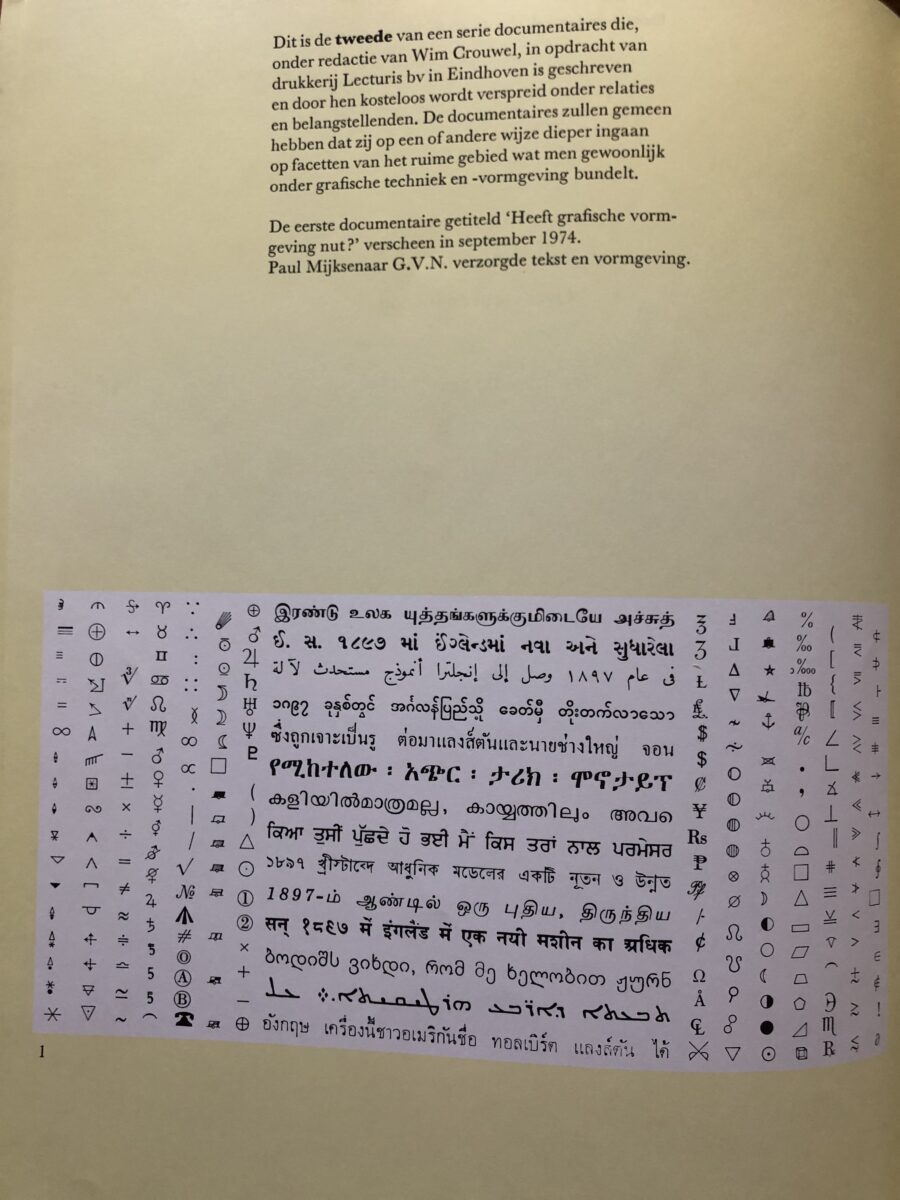 Dit is de tweede van een serie documentaires die,
onder redactie van Wim Crouwel, in opdracht van
drukkerij Lecturis bv in Eindhoven is geschreven
en door hen kosteloos wordt verspreid onder relaties
en belangstellenden. De documentaires zullen gemeen
hebben dat zij op een of andere wijze dieper ingaan
op facetten van het ruime gebied wat men gewoonlijk
onder grafische techniek en -vormgeving bundelt.
De eerste documentaire getiteld ‘Heeft grafische vorm-
geving nut?’ verscheen in september 1974.
Paul Mijksenaar G.V.N. verzorgde tekst en vormgeving.
இரண்டு உலக யுத்தங்களுக்குமிடையே அச்சுத்
ઈ. સ. ૧૮૯૭ માં ઈંગ્લેન્ડમાં નવા અને સુધારેલા
فى عام ١٨٩٧ وصل إلى إنجلترا أنموذج مستحدث لآلة
၁၈၉၇ ခုနှစ်တွင် အင်္ဂလန်ပြည်သို့ ခေတ်မှီ တိုးတက်လာသော
ซึ่งถูกเจาะเป็นรู ต่อมาแลงส์ตันและนายช่างใหญ่ จอน
የሚከተለው ፡ አጭር ፡ ታሪክ ፡ ሞኖታይፕ
കളിയിൽമാത്രമല്ല, കായ്യത്തിലും അവര
ਕਿਆ ਤੁਸੀਂ ਪੁੱਛਦੇ ਹੋ ਭਈ ਮੈਂ ਕਿਸ ਤਰਾਂ ਨਾਲ ਪਰਮੇਸਰ
১৮৯৭ খ্রীস্টাব্দে আধুনিক মডেলের একটি নূতন ও উন্নত
1897-ம் ஆண்டில் ஒரு புதிய, திருந்திய
सन् १८९७ में इंगलैंड में एक नयी मशीन का अधिक
ბოდიშს ვიხდი, რომ მე ხელობით ჟურნ
อังกฤษ เครื่องนี้ชาวอเมริกันชื่อ ทอลเบิร์ต แลงส์ตัน ได้
1